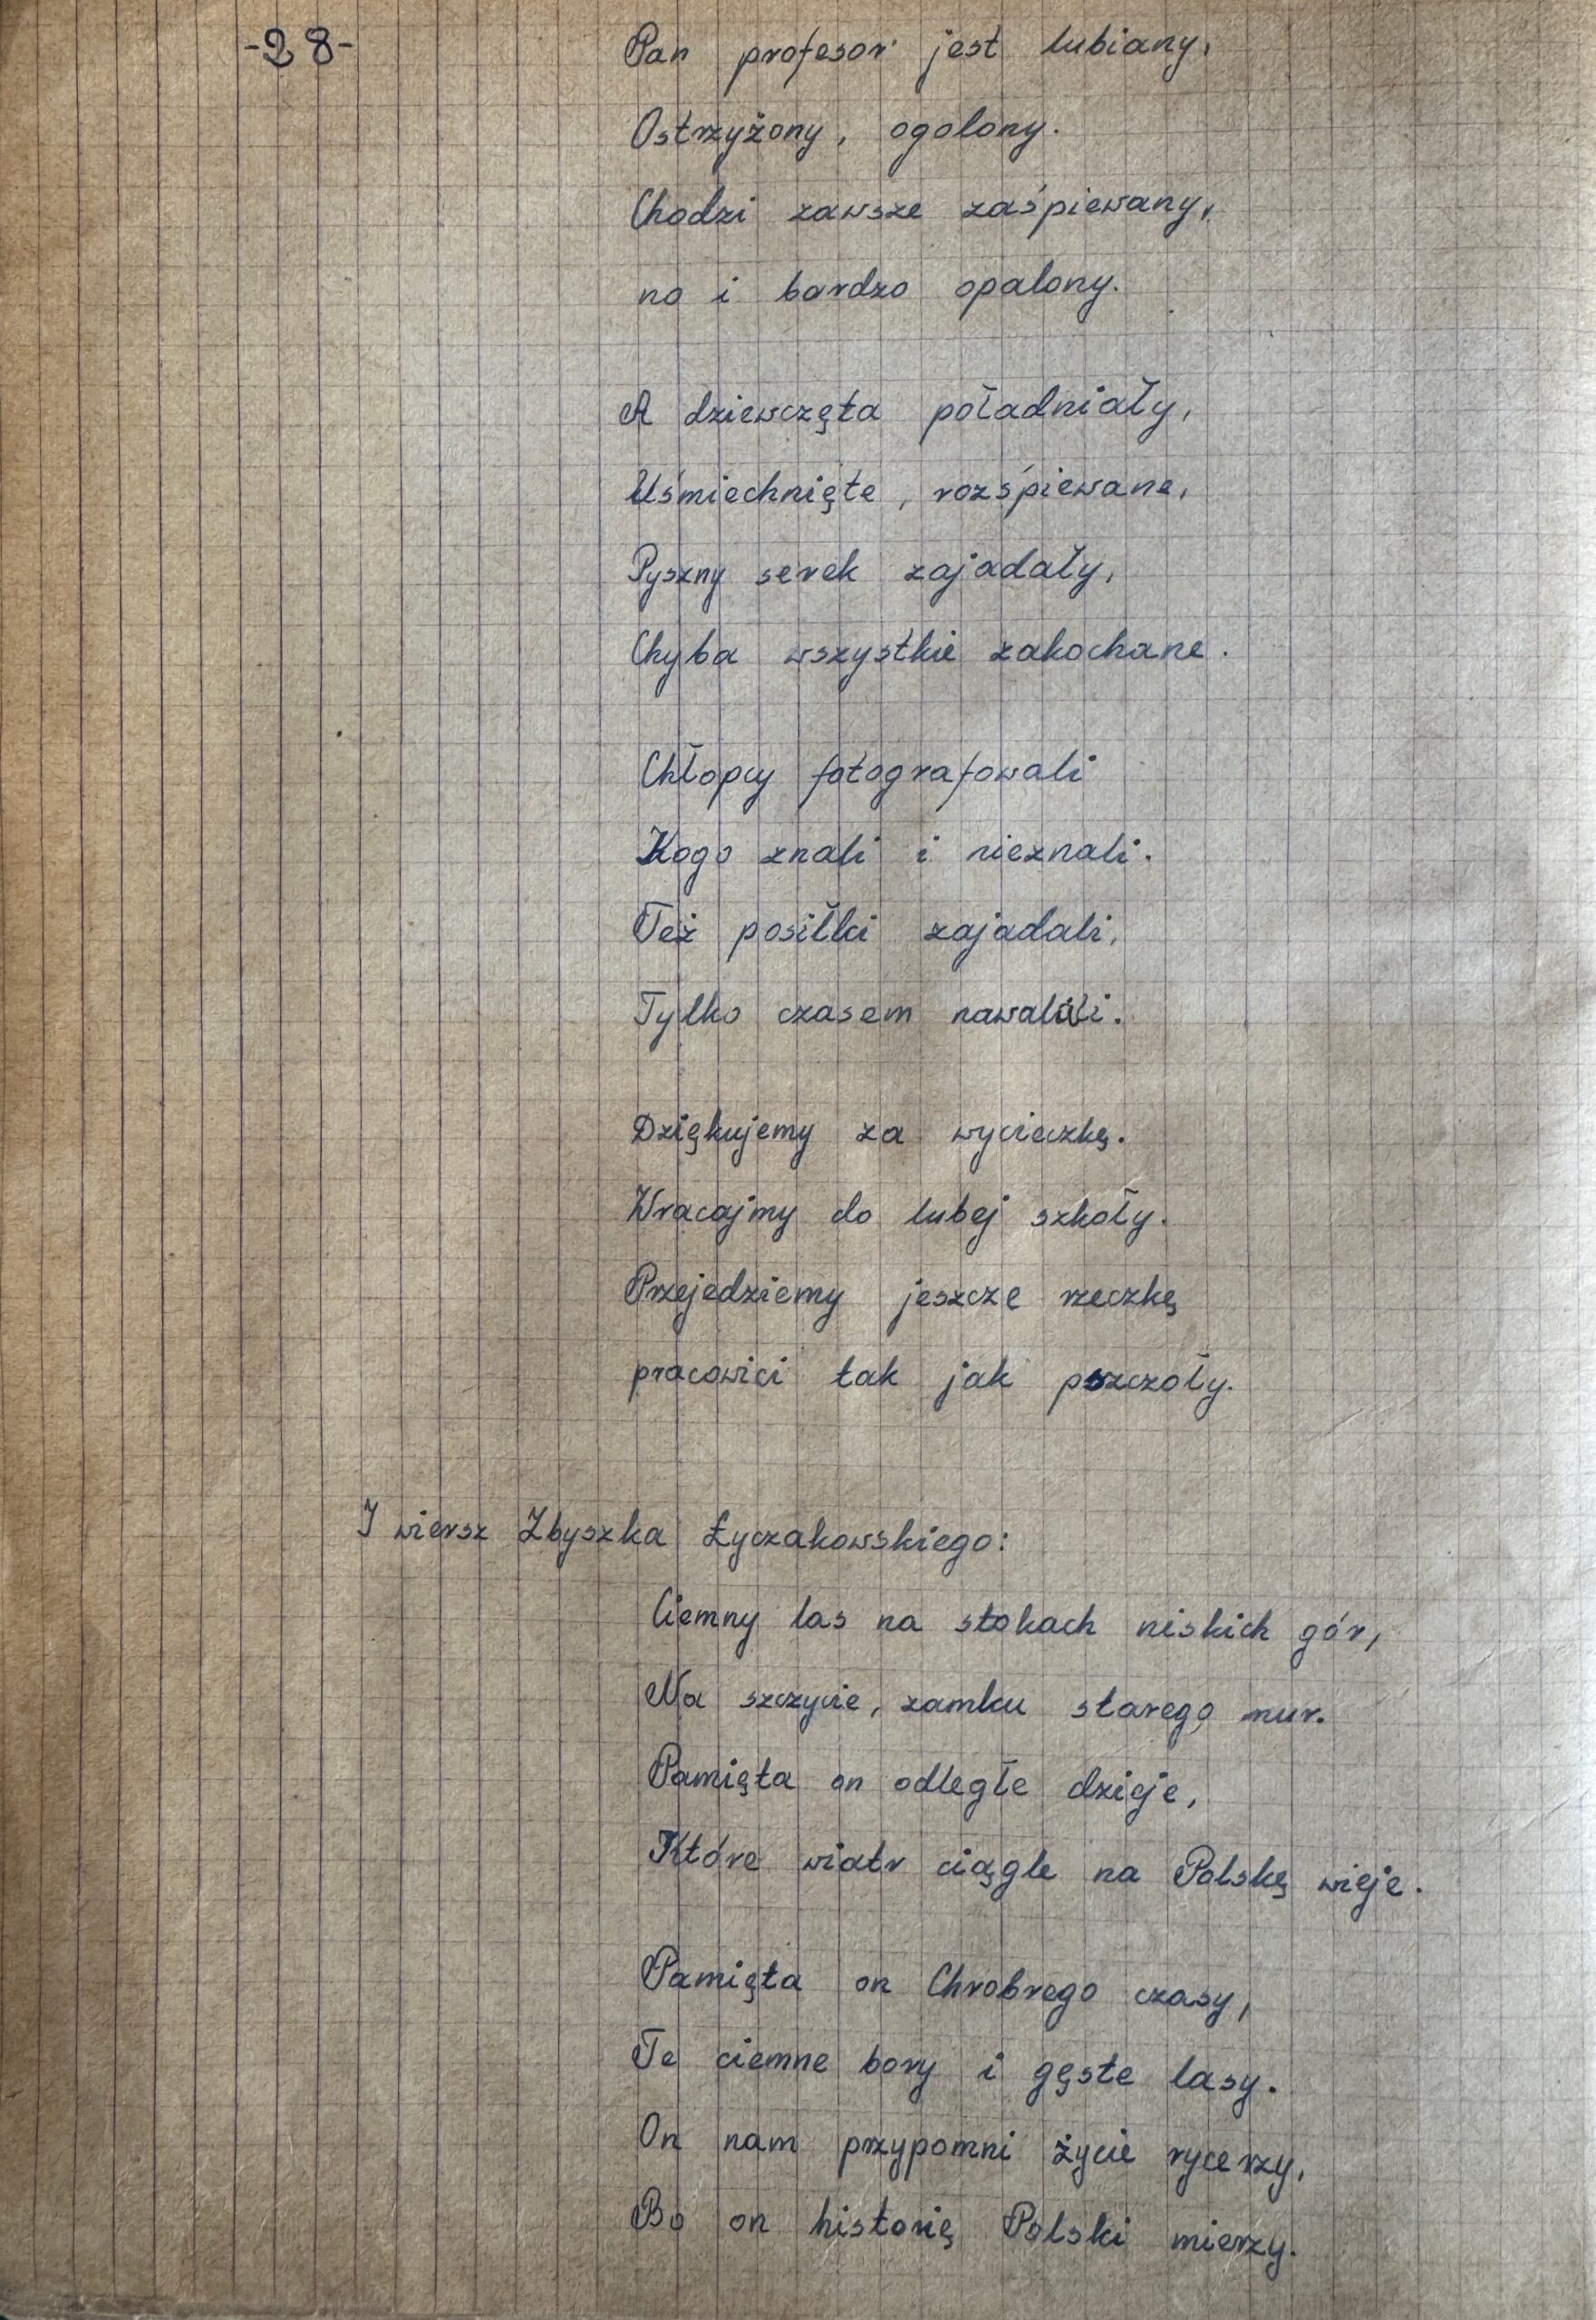 -28-
Pan profesor jest lubiany,
Ostrzyżony, ogolony.
Chodzi zawsze zaśpiewany,
no i bardzo opalony.
A dziewczęta poładniały,
Uśmiechnięte, rozśpiewane,
Pyszny serek zajadały,
Chyba wszystkie zakochane.
Chłopcy fotografowali
Kogo znali i nieznali.
Też posiłki zajadali,
Tylko czasem nawalali.
Dziękujemy za wycieczkę.
Wracajmy do lubej szkoły.
Przejedziemy jeszcze rzeczkę
pracowici tak jak pszczoły.
I wiersz Zbyszka Łyczakowskiego:
Ciemny las na stokach niskich gór,
Na szczycie, zamku starego mur.
Pamięta on odległe dzieje,
Które wiatr ciągle na Polskę wieje.
Pamięta on Chrobrego czasy,
Te ciemne bory i gęste lasy.
On nam przypomni życie rycerzy,
Bo on historię Polski mierzy.